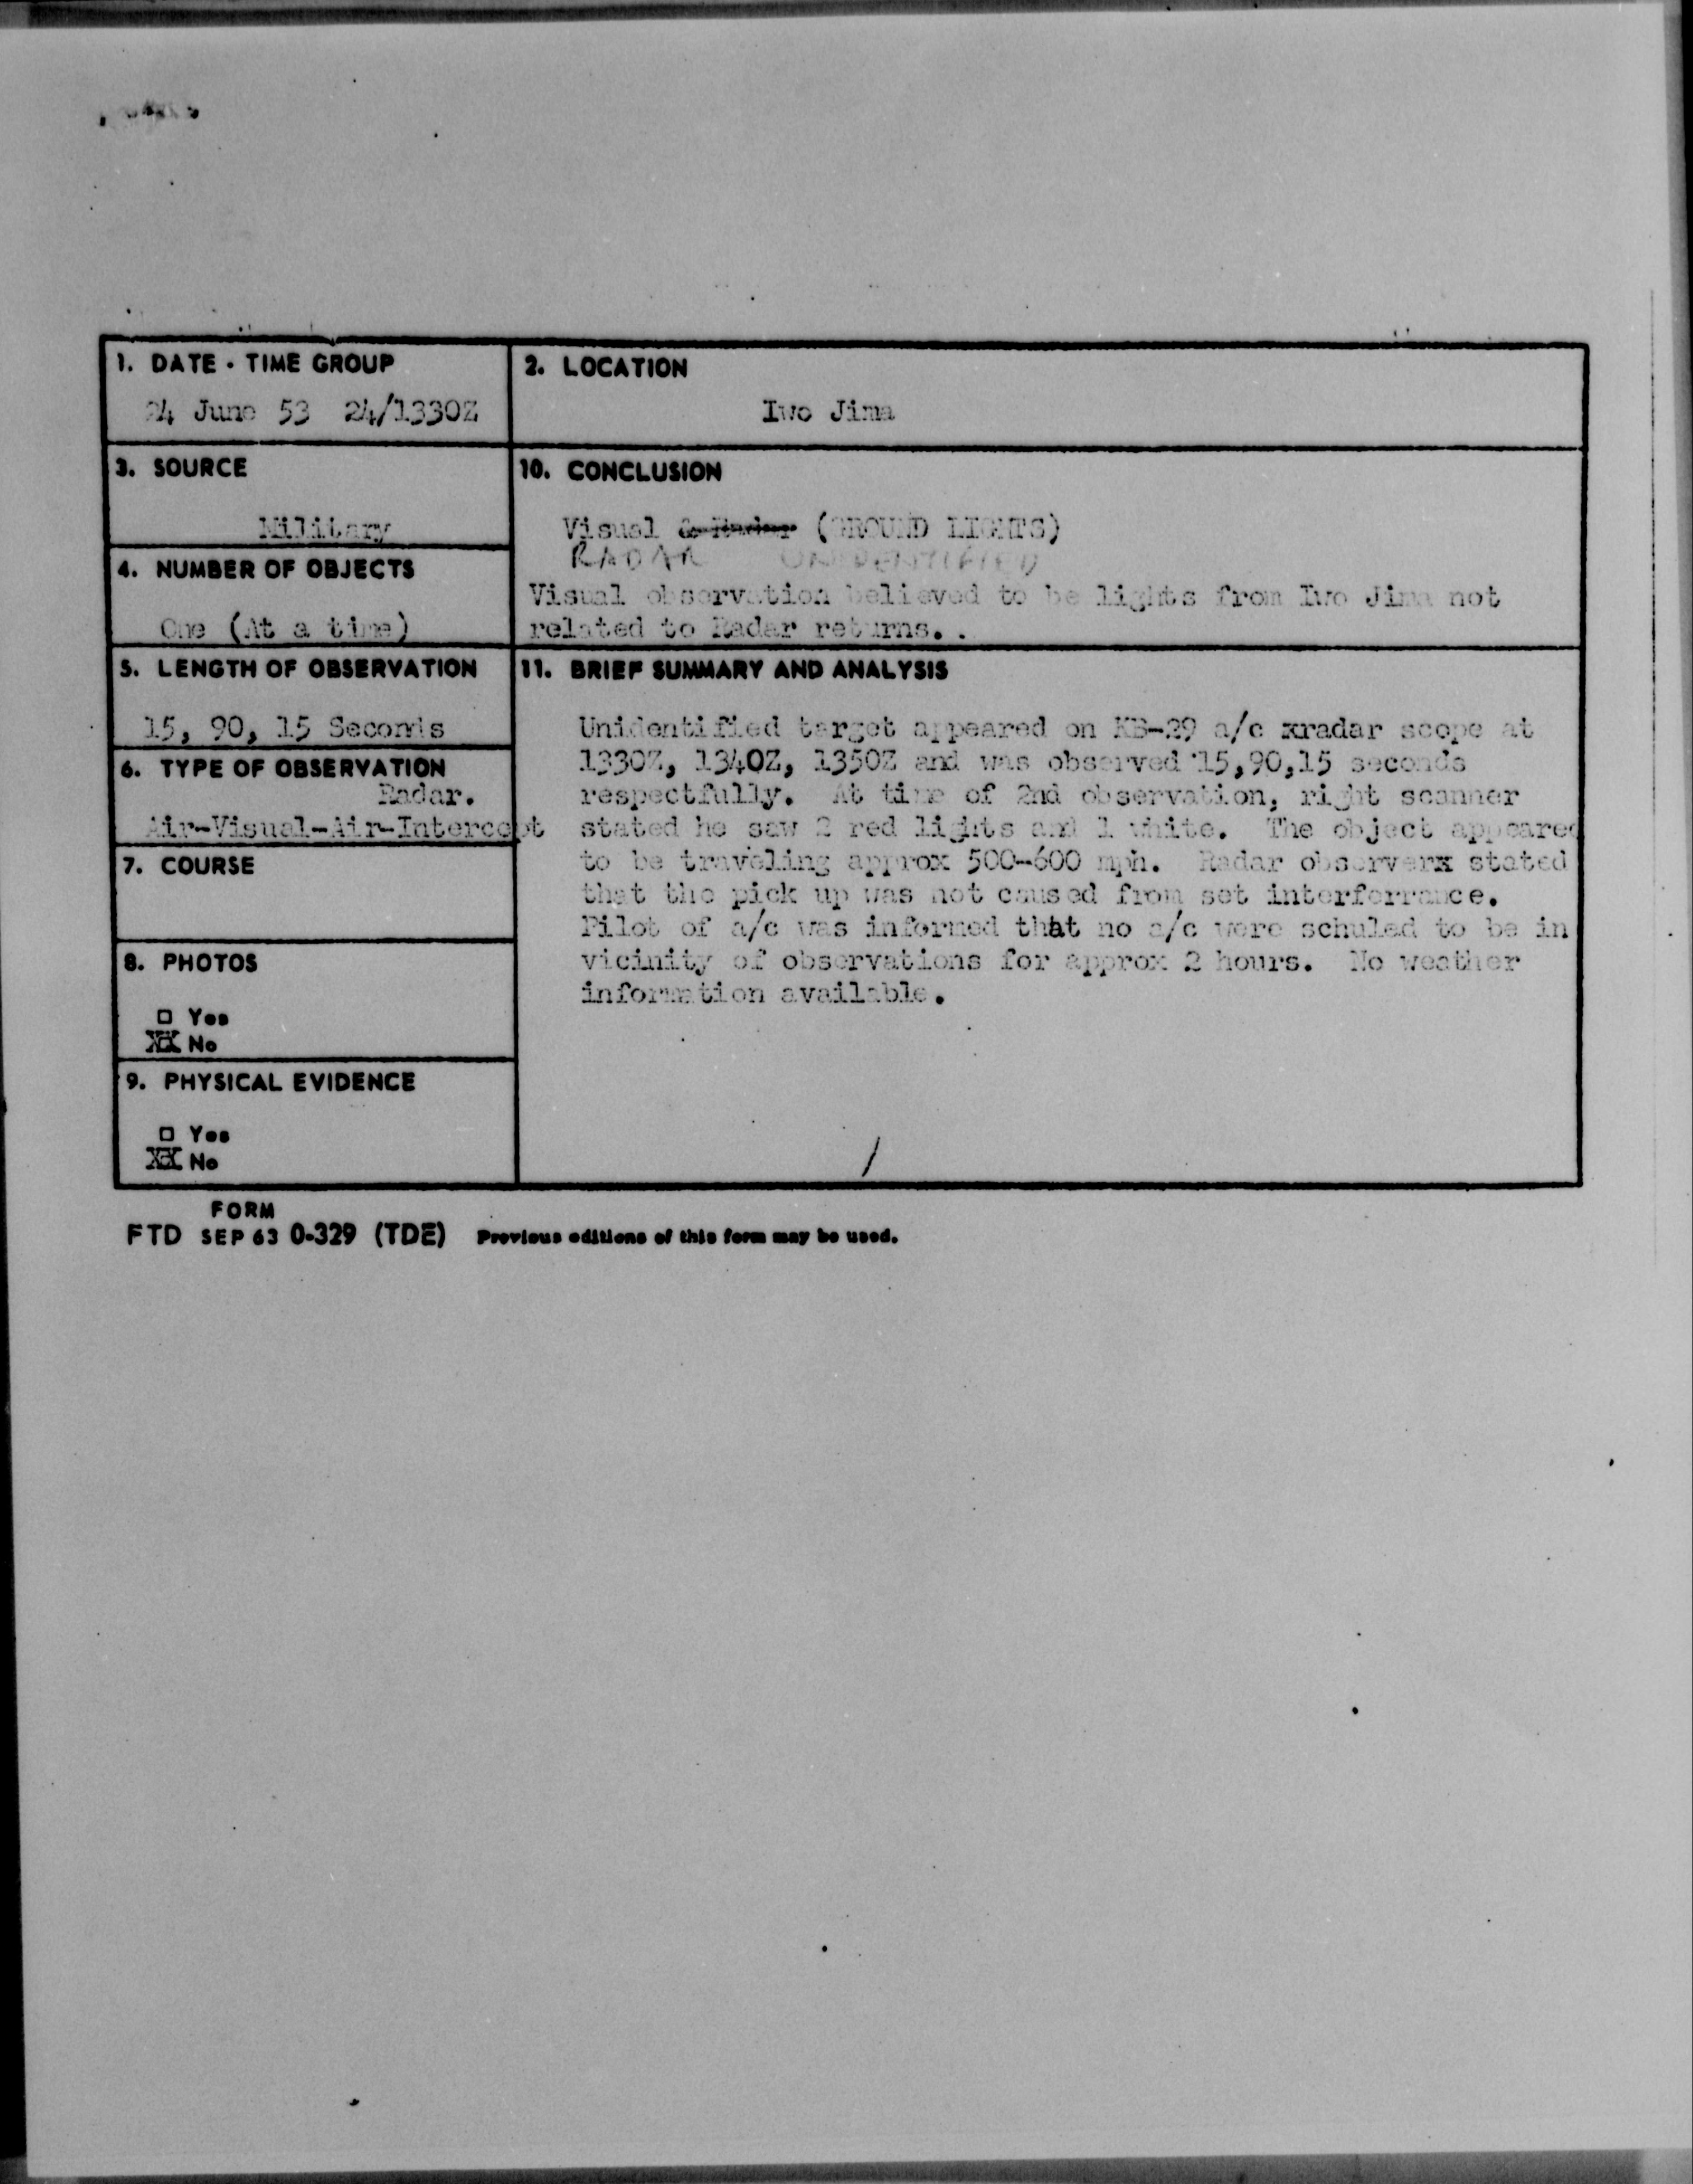 1. DATE - TIME GROUP
24 June 53 24/1330Z
2. LOCATION
Iwo Jima
3. SOURCE
Military
10. CONCLUSION
Visual & Radar (GROUND LIGHTS)
RADAR UNIDENTIFIED
Visual observation believed to be lights from Iwo Jima not
related to Radar returns. .
4. NUMBER OF OBJECTS
One (At a time)
5. LENGTH OF OBSERVATION
15, 90, 15 Seconds
11. BRIEF SUMMARY AND ANALYSIS
Unidentified target appeared on KB-29 a/c xradar scope at
1330Z, 1340Z, 1350Z and was observed 15,90,15 seconds
respectfully. At time of 2nd observation, right scanner
stated he saw 2 red lights and 1 white. The object appeared
to be traveling approx 500-600 mph. Radar observerx stated
that the pick up was not caused from set interferrance.
Pilot of a/c was informed that no a/c were schuled to be in
vicinity of observations for approx 2 hours. No weather
information available.
6. TYPE OF OBSERVATION
Radar.
Air-Visual-Air-Intercept
7. COURSE
8. PHOTOS
□ Yes
XX No
9. PHYSICAL EVIDENCE
□ Yes
XX No
/
FORM
FTD SEP 63 0-329 (TDE) Previous editions of this form may be used.